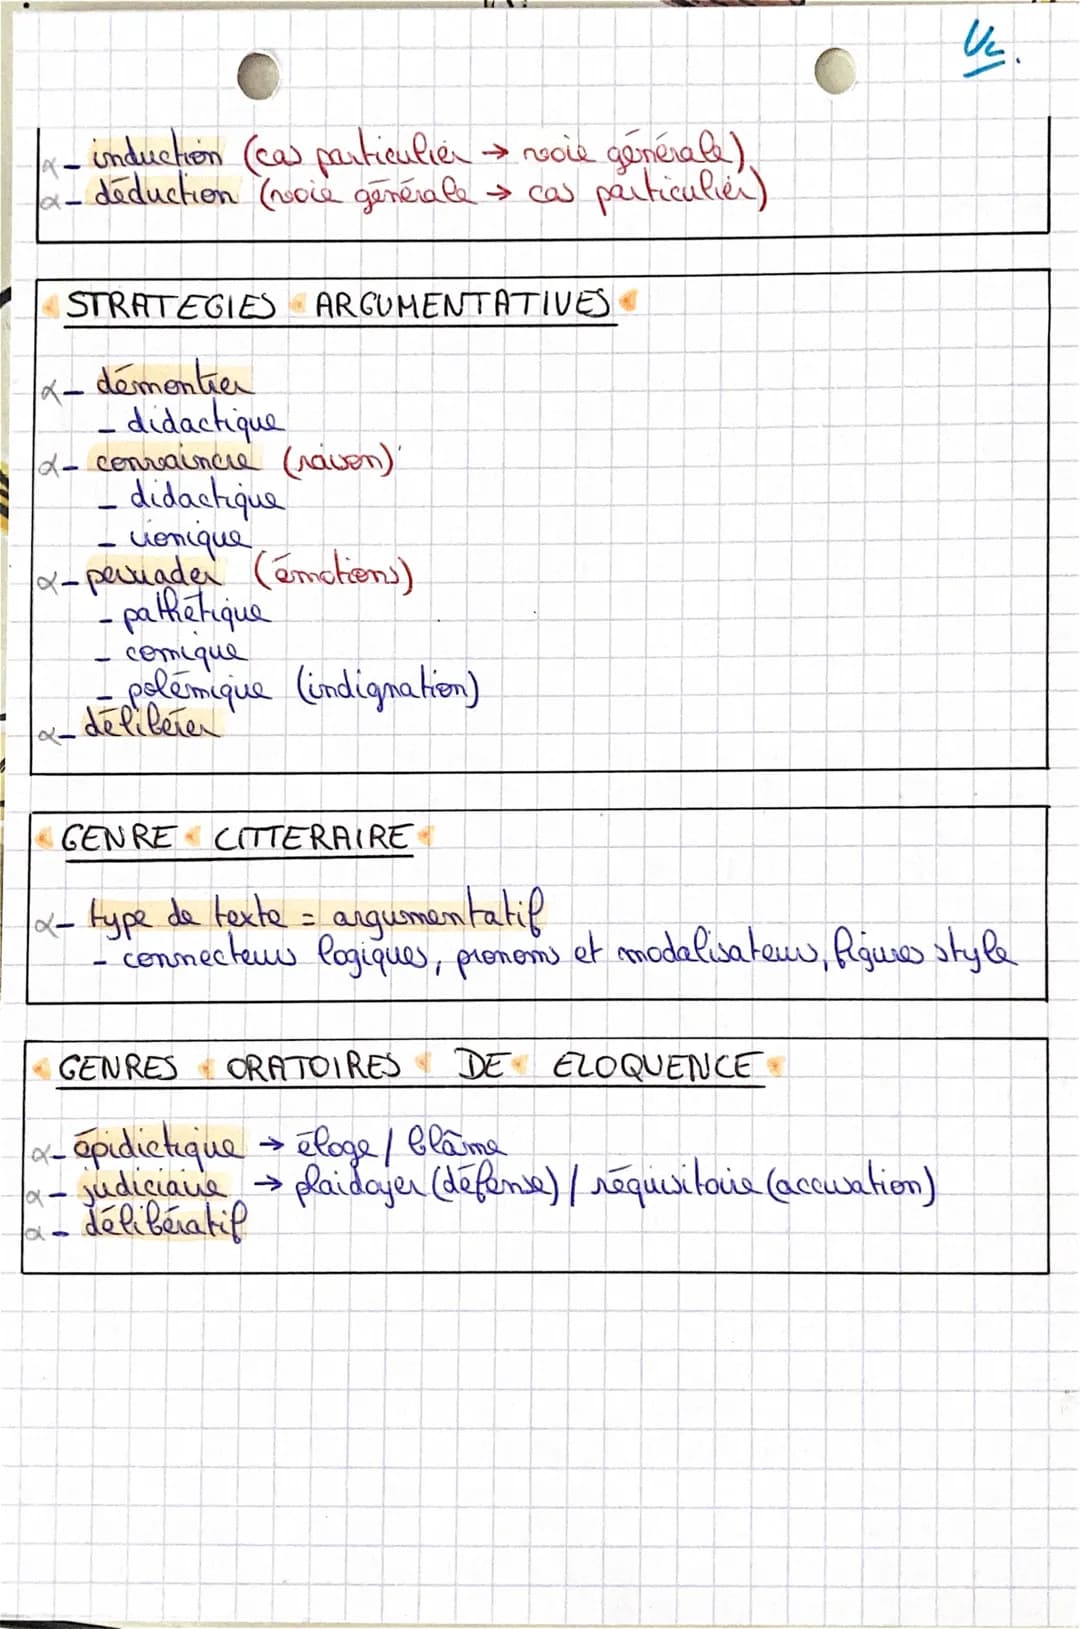 α- induction (cas particulier → voie générale)
α- déduction (voie générale → cas particulier)
STRATEGIES ARGUMENTATIVES
α- démontrer
- didactique
α- convaincre (raison)
- didactique
- ironique
α- persuader (émotions)
- pathétique
- comique
- polémique (indignation)
α- délibérer
GENRE LITTERAIRE
α- type de texte = argumentatif
- connecteurs logiques, pronoms et modalisateurs, figures style
GENRES ORATOIRES DE ELOQUENCE
α- épidictique → éloge / blâme
α- judiciaire → plaidoyer (défense) / réquisitoire (accusation)
α- délibératif